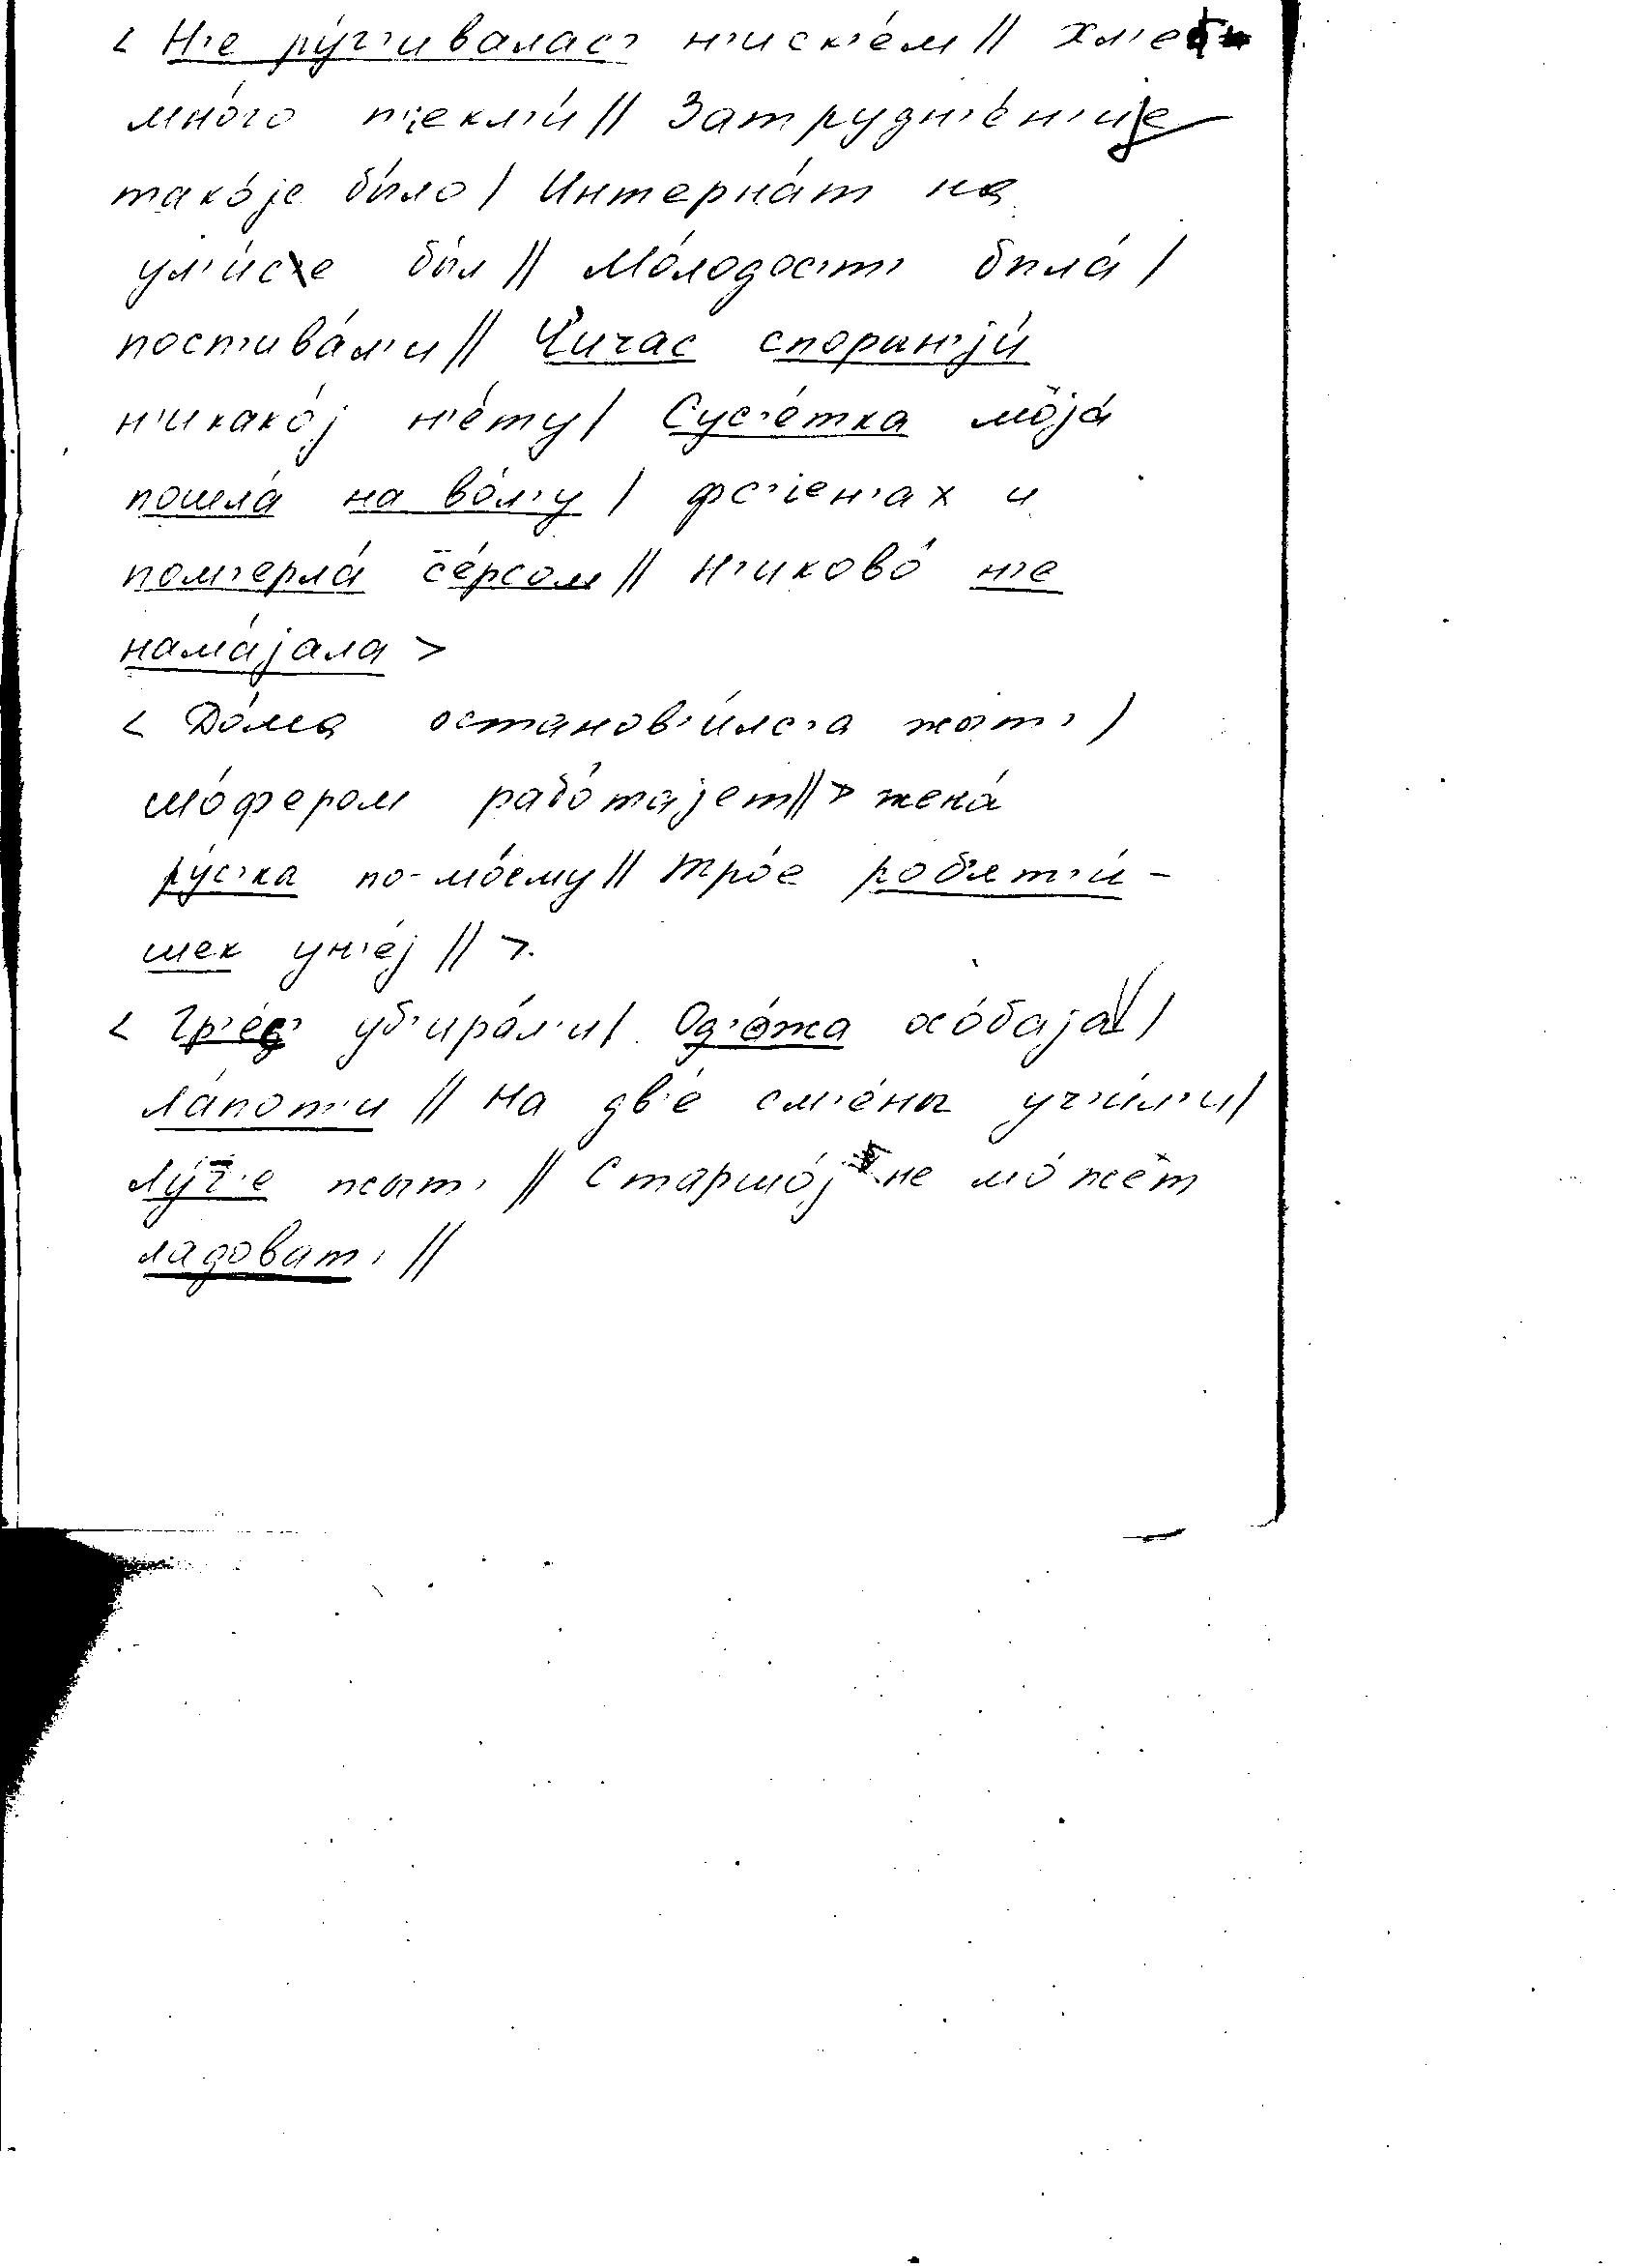 < Н'е ру́г'ивалас' н'иск'е́м // Хл'еба
мно́го п'екл'и́ // Затрудн'е́н'ије
тако́је бы́ло / Интерна́т на
ул'и́се бы́л // Мо́лодос'т' была́ /
пост'ива́л'и // Чичас спорын'ји́
н'икако́ј н'е́ту / Сус'е́тка моја́
пошла́ на во́л'у / фс'ен'ах и
пом'ерла́ се́рсом // Н'иково́ н'е
нама́јала >
< До́ма останов'и́лс'а жыт' /
шо́фером рабо́тајет // > жена́
ру́с'ка по-мо́ему // Тро́е роб'ят'и́-
шек ун'е́ј // >.
< Гр'е́с' уб'ира́л'и / Од'о́жа хо́баја /
ла́пот'и // На дв'е́ см'е́ны уч'и́л'и /
Лу́ч'е жыт' // Старшо́ј не мо́жет
ладоват' //